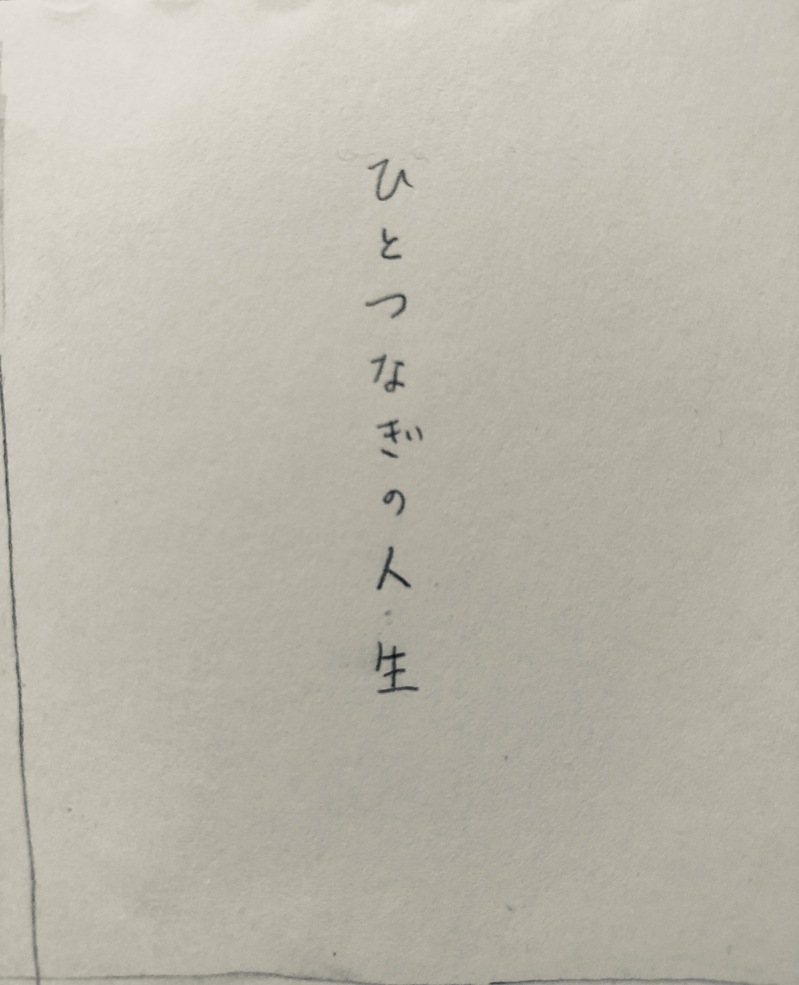 ひとつなぎの人生